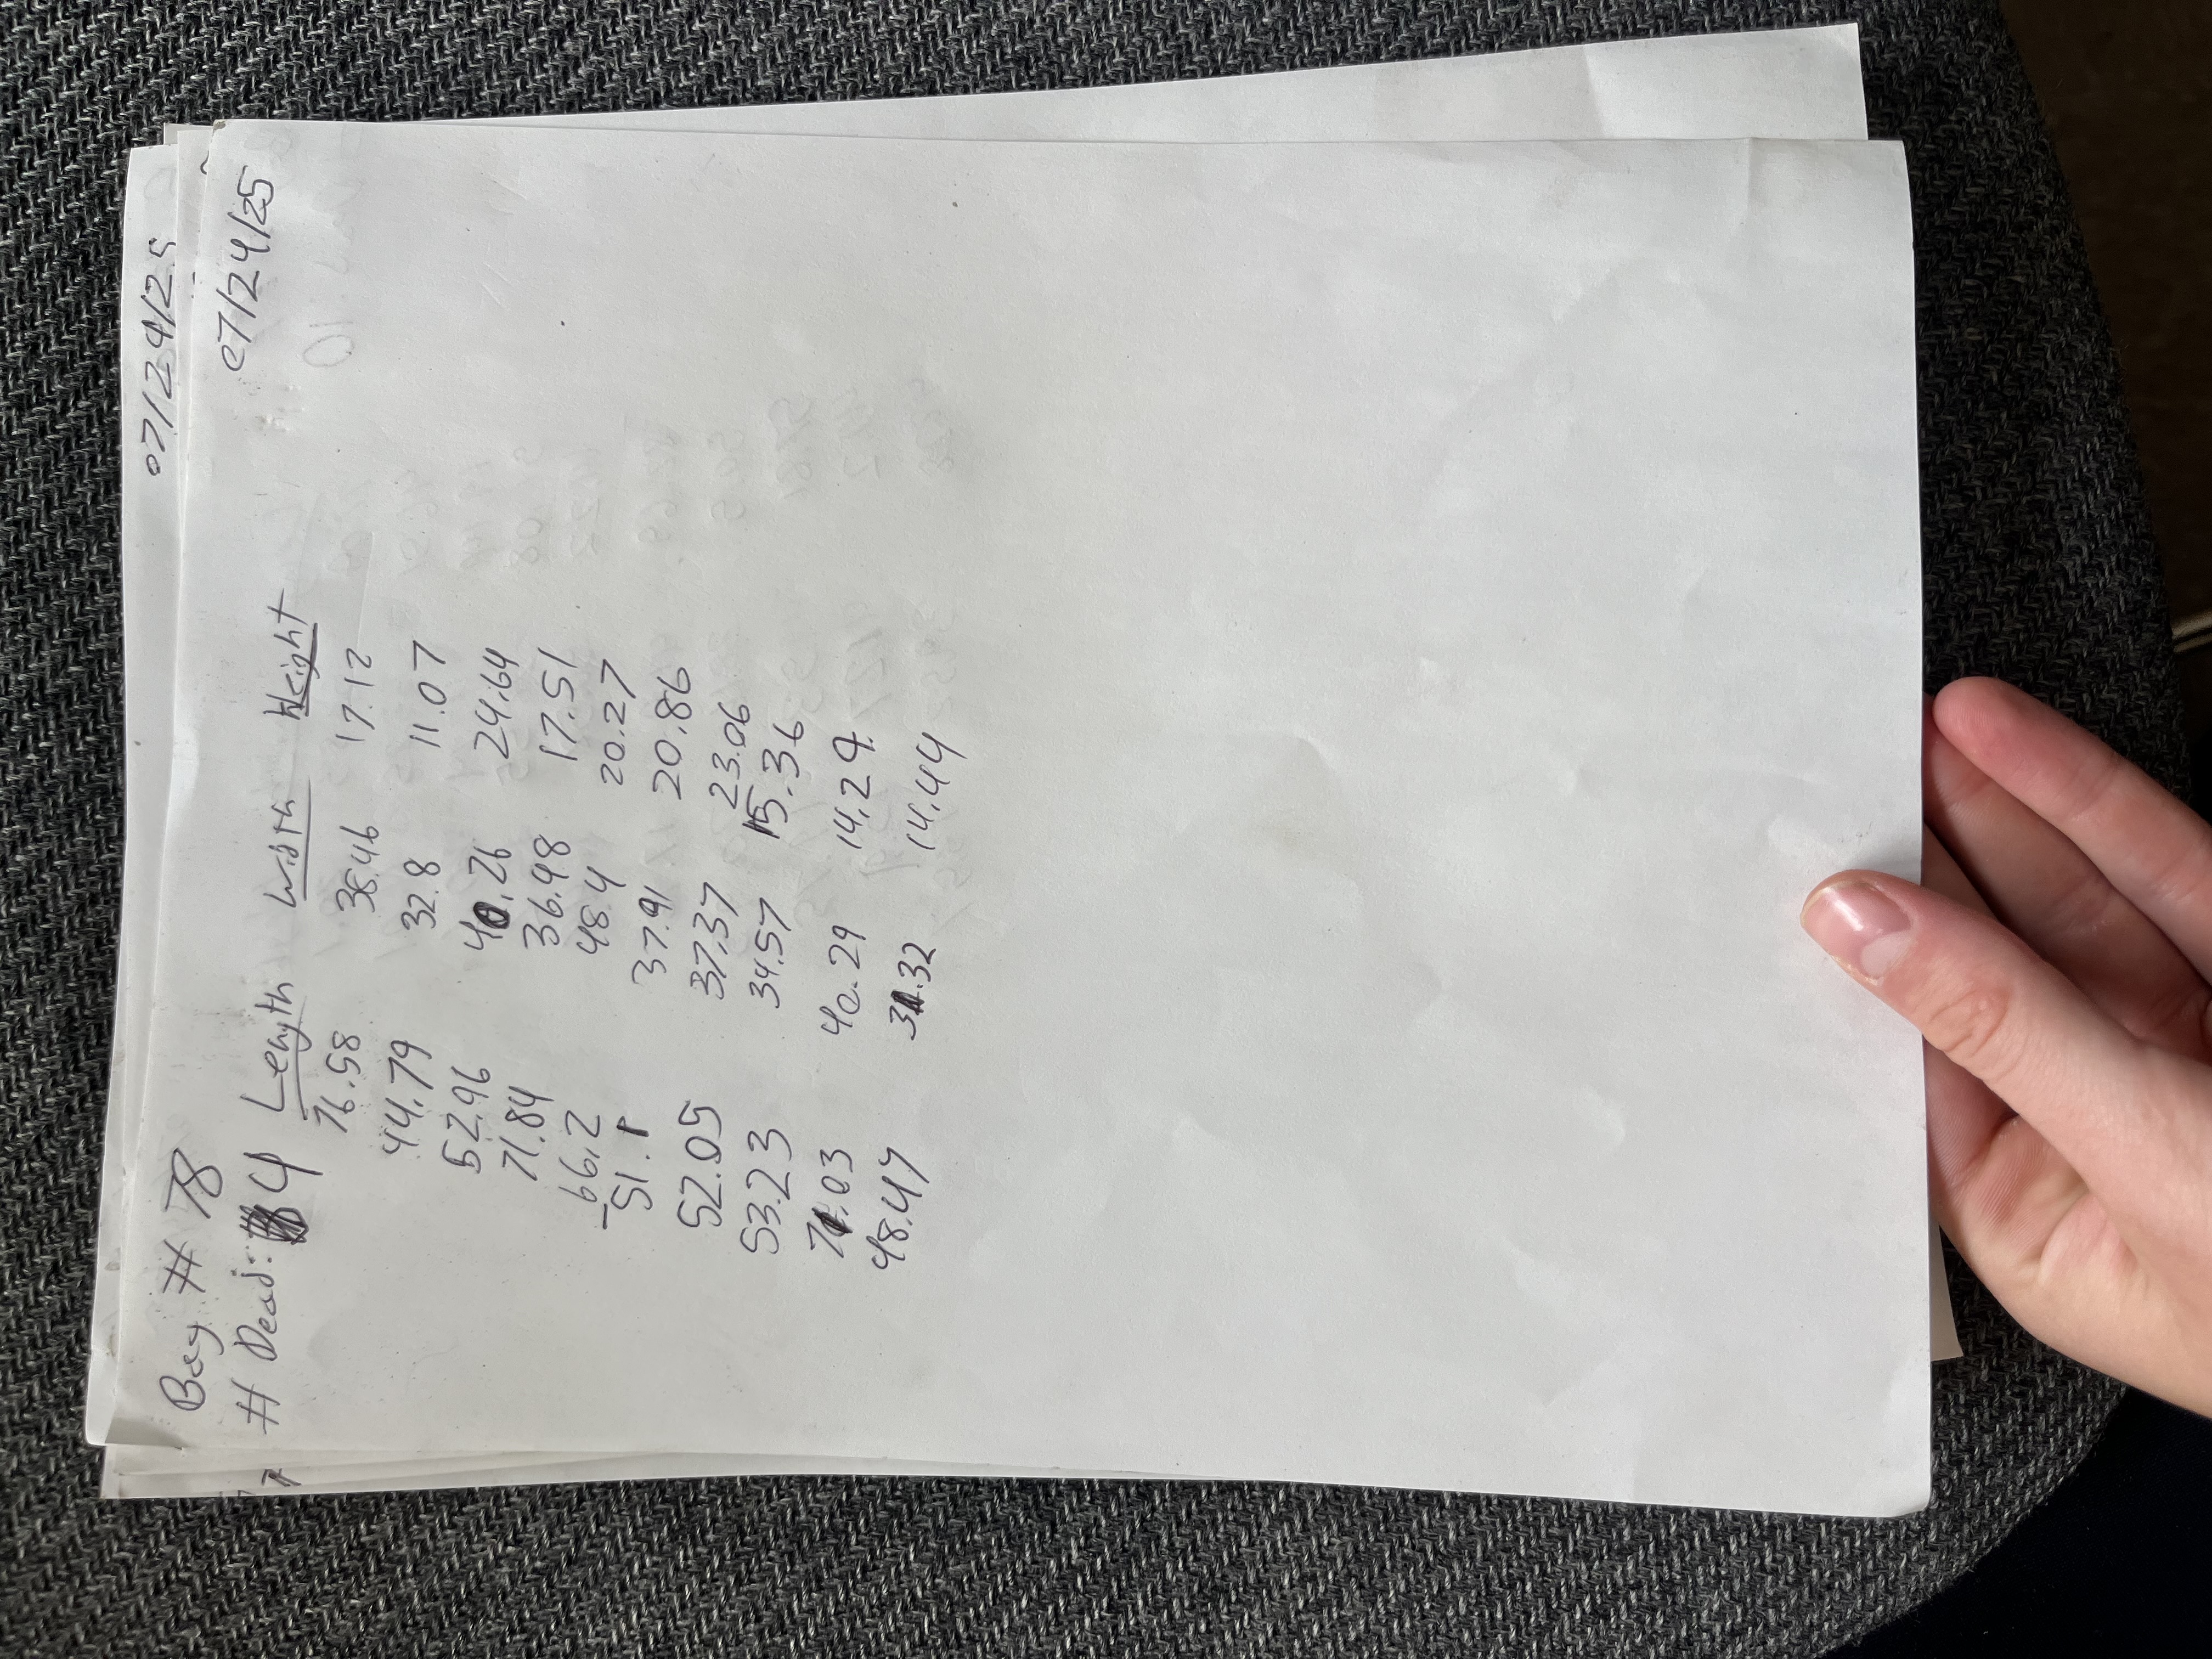 07/24/25
Bag # 78
07/24/25
# Dead: 4 Length Width Height
76.58 38.46 17.12
44.79 32.8 11.07
52.96 40.26 24.64
71.84 36.48 17.51
66.2 48.4 20.27
51.1 37.91 20.86
52.05 37.37 23.06
53.23 34.57 15.36
71.03 40.29 14.29
48.47 31.32 14.44